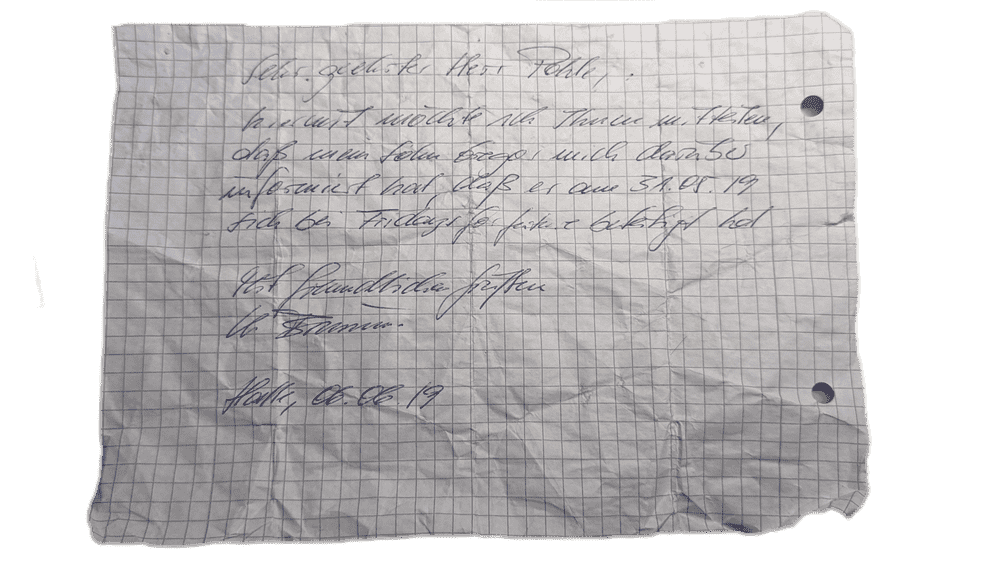 Sehr geehrter Herr Pohle,
hiermit möchte ich Ihnen mitteilen,
daß mein Sohn mich darüber
informiert hat, daß er am 31.05.19
sich bei Fridays for future beteiligt hat
Mit freundlichen Grüßen
Halle, 06.06 19